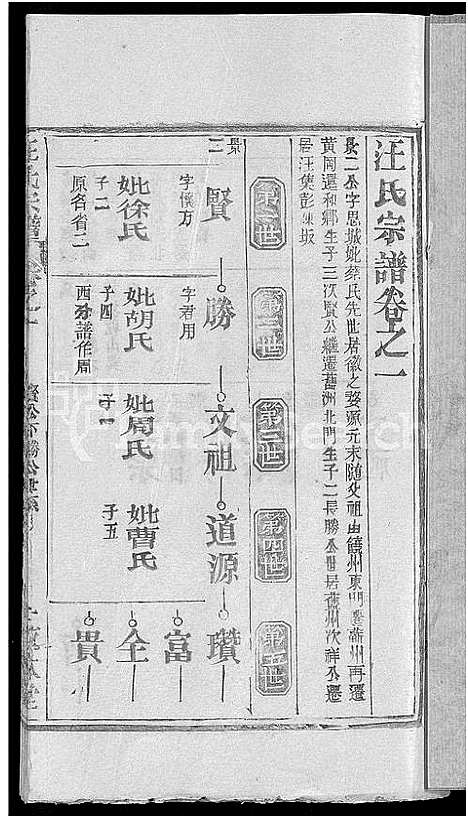 汪氏宗譜卷之一
景二公字思城妣蔡氏先世居徽之婺源元末随父祖由饒州東門遷蘄州再遷
黃岡還和鄉生子三次賢公繼遷舊洲北門生子二長勝公世居舊州次祥公遷
居汪集彭陳坂
第一世
第二世
第三世
第四世
第五世
景二
賢
勝
文祖
道源
瓚
富
仝
貴
字懷方
妣徐氏
子二
原名省二
字君用
妣胡氏
子四
西分譜作周
妣周氏
子一
妣曹氏
子五